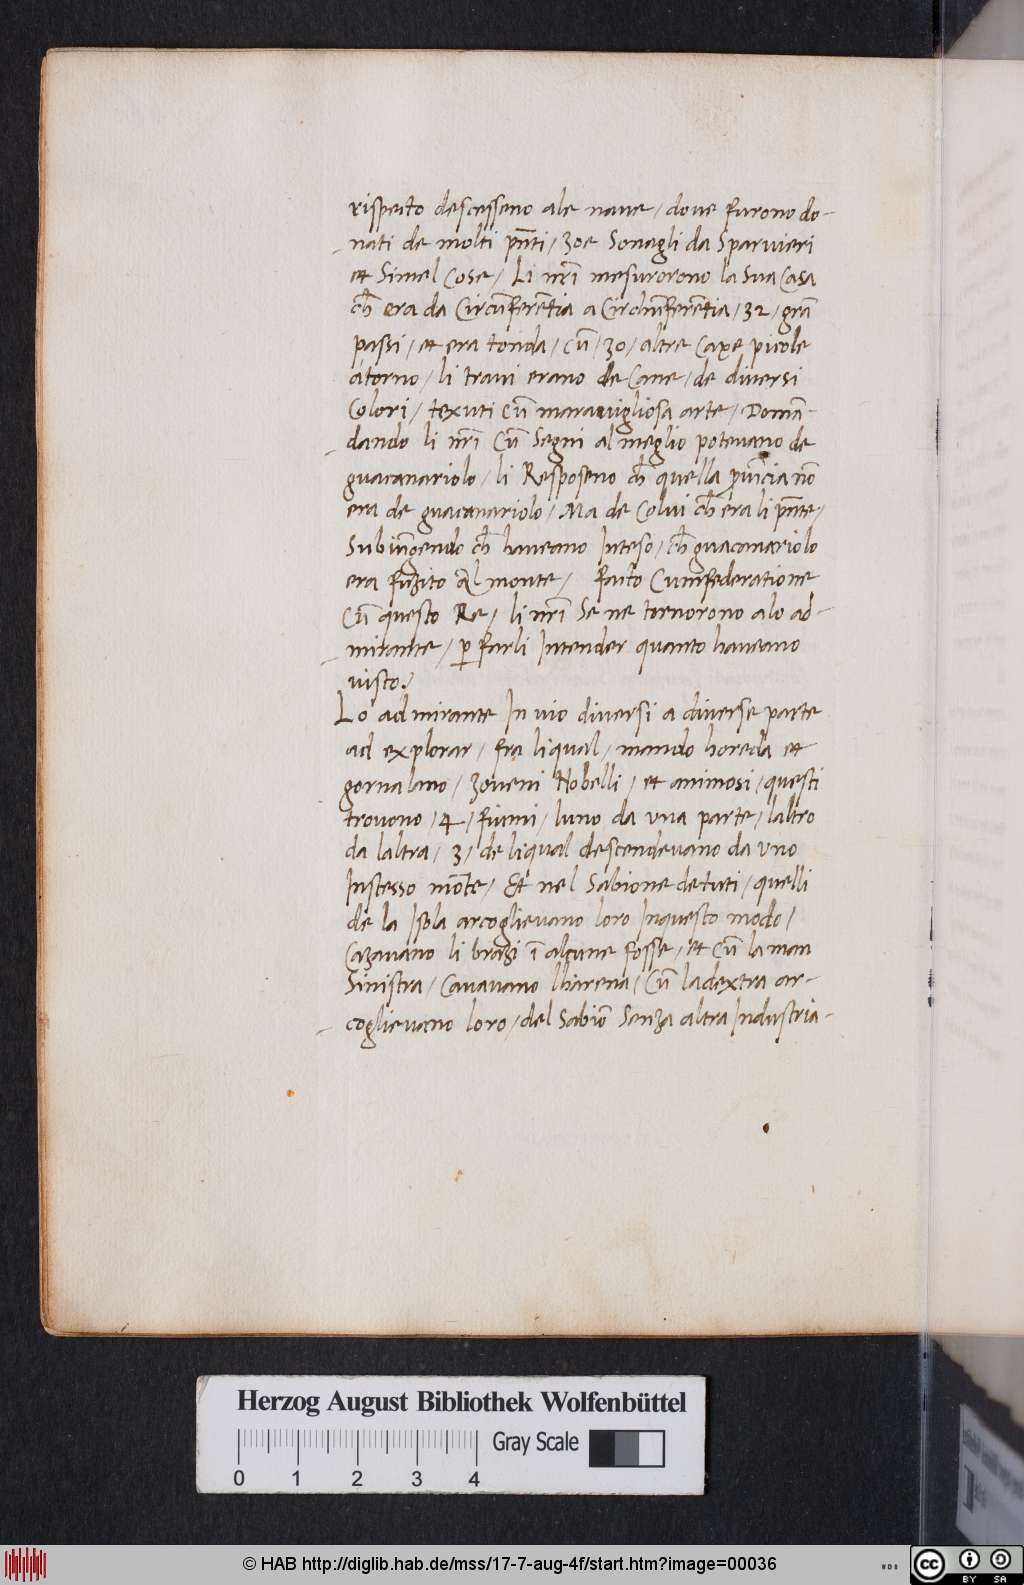 rispecto descesseno ale naue / doue furono do-
nati de molti pñti / zoe Sonagli da Sparuieri
et Simel Cose / Li nr̃i mesurorono la Sua Casa
ch̃ era da Circũferẽtia a Circũferẽtia / 32 / grã
passi / et era tonda / cũ / 30 / altre Caxe picole
atorno / li traui erano de Cane / de diuersi
Colori / texuti cũ marauigliosa arte / Domã-
dando li nr̃i Cũ Segni al meglio poteuano de
guacanariolo / li Resposeno ch̃ quella puĩcia nõ
era de guacanariolo / Ma de Colui ch̃ era li pñte /
Subiũgendo ch̃ haueano Inteso / ch̃ guacanariolo
era fuzito Al monte / facto Cumfederatione
Cũ questo Re / li nr̃i Se ne tornorono alo ad-
mirante / p farli Intender quanto haueano
uisto /
Lo admirante In uio diuersi a diuerse parte
ad explorar / fra liqual / mando horeda et
gornalano / zoueni Nobelli / et animosi / questi
trouono / 4 / fiumi / luno da vna parte / laltro
da laltra / 3 / de liqual descendeuano da vno
Instesso mõte / Et nel Sabione de tuti / quelli
de la Isola arcoglieuano loro Inquesto modo /
Cazauano li brazi ĩ alcune fosse / et Cũ la man
Sinistra / Cauauano lharena / Cũ ladextra ar-
coglieuano loro / del Sabiõ Senza altra Industria-
Herzog August Bibliothek Wolfenbüttel
Gray Scale
0 1 2 3 4
© HAB http://diglib.hab.de/mss/17-7-aug-4f/start.htm?image=00036
WDB
cc BY SA